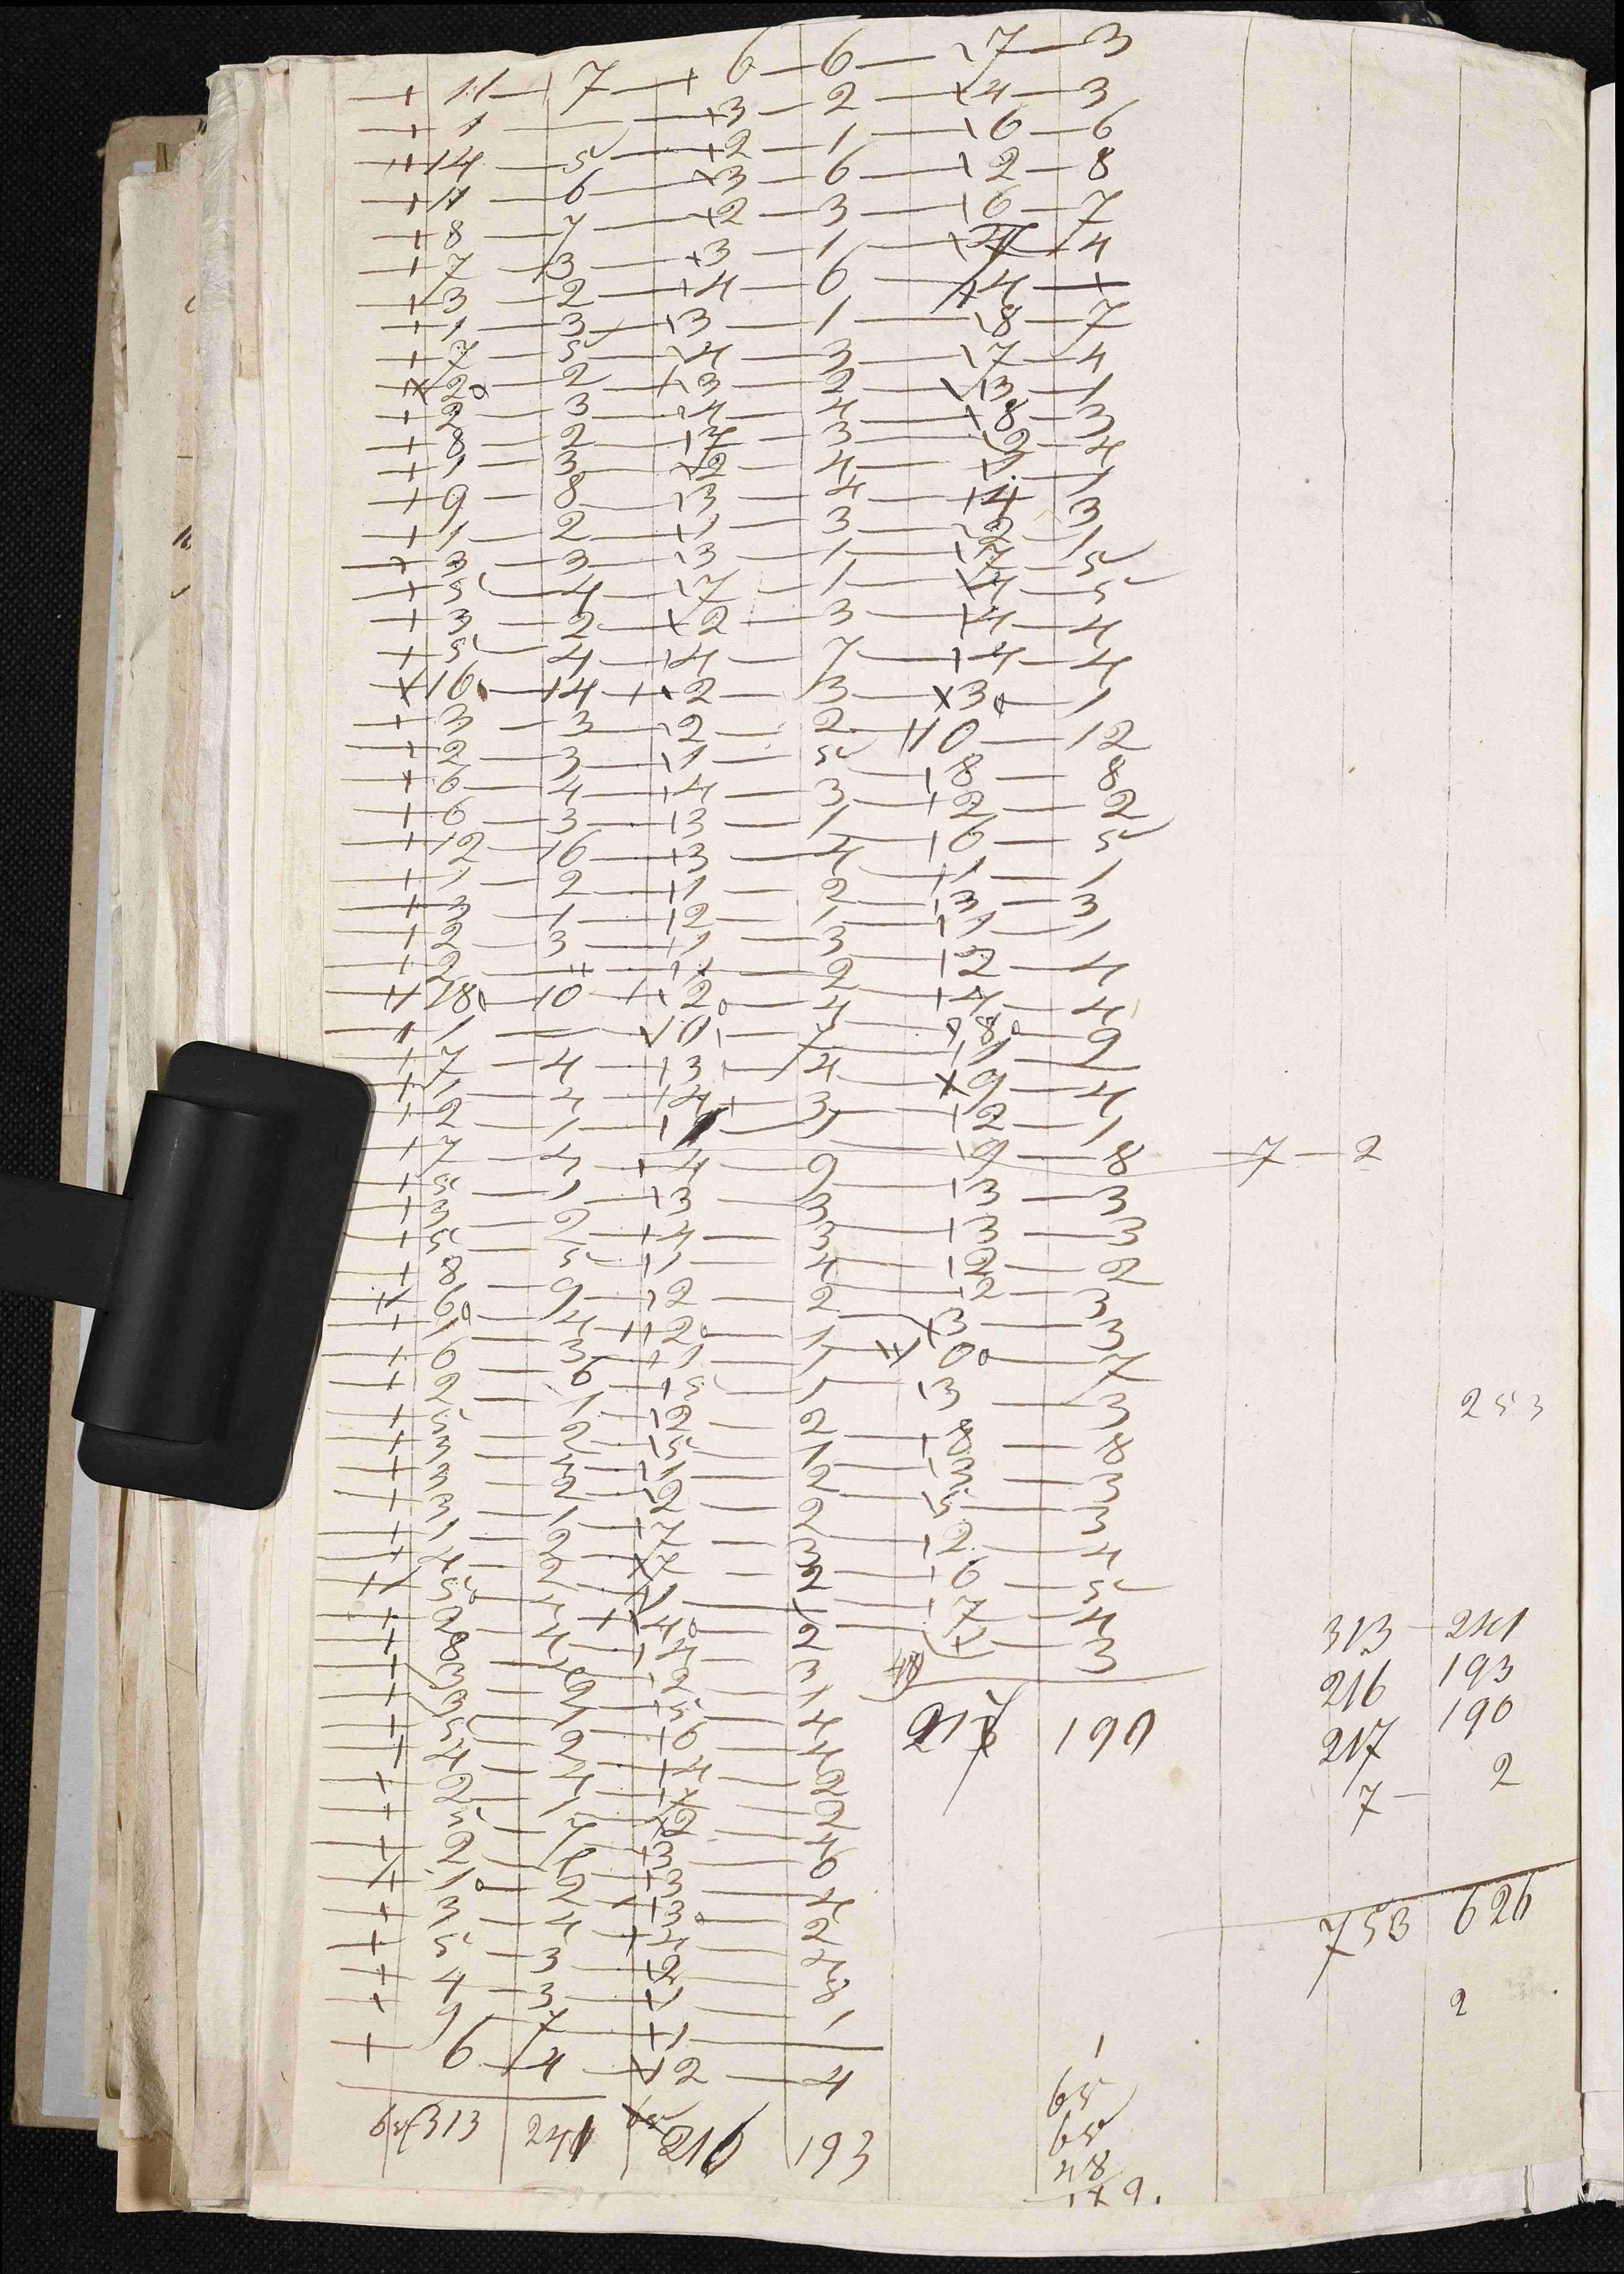 + 11 — 7 — + 6 — 6 — \ 7 — 3
+ 1 — + 3 — 2 — + 4 — 3
+ 14 — 5 — + 2 — 1 — \ 6 — 6
+ 11 — 6 — + 3 — 6 — \ 2 — 8
+ 8 — 7 — + 2 — 3 — \ 6 — 7
+ 7 — 3 — + 3 — 1 — 4
+ 3 — 2 — + 4 — 6 — + 4 — +
+ 1 — 3 — \ 3 — 1 — \ 8 — 7
+ 7 — 5 — \ 4 — 3 — \ 7 — 4
x 2 o — 2 — + 3 — 2 — \ 3 — 1
+ 2 — 3 — \ 4 — 4 — \ 8 — 3
+ 8 — 2 — 3 — \ 2 — 4
+ 1 — 3 — \ 2 — 4 — 1
+ 9 — 8 — \ 3 — 4 — + 4 — 3
+ 1 — 2 — + 1 — 3 — \ 2 — 1
+ 3 — 3 — \ 3 — 1 — \ 7 — 5
+ 5 — 4 — \ 7 — 1 — \ 4 — 5
+ 3 — 2 — \ 2 — 3 — \ 4 — 4
+ 5 — 4 — + 4 — 7 — \ 4 — 4
x 16 — 14 — + 2 — 3 — x 3 o — 1
+ 3 — 3 — \ 2 — 2 — + 10 — 12
+ 2 — 3 — \ 1 — 5 — \ 8 — 8
+ 6 — 4 — + 4 — 3 — + 2 — 2
+ 6 — 3 — + 3 — 1 — \ 6 — 5
+ 12 — 16 — + 3 — 4 — + 1 — 1
+ 1 — 2 — + 1 — 2 — \ 3 — 3
+ 3 — 1 — + 2 — 1 — \ 1 — 1
+ 2 — 3 — + 1 — 3 — \ 2 — 4
+ 2 — 2 — + 4 — 4
+ 18 o — 10 — + 2 o — 4 — 8 o — 9
+ 1 — \ 10 — 7
+ 7 — 4 — + 3 — 4 — x 9 — 4
+ 1 — 4 — + 4 — 3 — \ 2 — 1
+ 2 — 1 — 1 — \ 9 — 8 — 7 — 2
+ 7 — 4 — + 4 — 9 — \ 3 — 3
+ 5 — 1 — \ 3 — 3 — + 3 — 3
+ 3 — 2 — + 4 — 3 — \ 2 — 2
+ 5 — 5 — + 1 — 4 — \ 2 — 3
+ 8 — 9 — \ 2 — 2 — x 3 — 3
+ 6 o — 4 — + 2 o — 1 — + 10 o — 7
+ 1 — 3 — + 1 — 1 — \ 3 — 3
+ 6 — 6 — + 5 — 1 — + 8 — 8
+ 2 — 1 — \ 2 — 2 — \ 3 — 3
+ 5 — 2 — \ 5 — 1 — \ 5 — 3
+ 3 — \ 1 — 2 — \ 2 — 4
+ 3 — 2 — \ 2 — 2 — \ 6 — 5
+ 3 — 1 — + 7 — 3 — \ 7 — 4
+ 1 — 2 — 3
+ 4 — 2
+ 5 o — 4 — + 4 o — 2
+ 2 — 4 — \ 4 — 3
+ 8 — \ 2 — 1
+ 3 — 2 — + 5 — 4
+ 3 — 1 — + 6 — 4
+ 5 — 2 — + 4 — 2
+ 4 — 4 — 2
+ 2 — 1 — 2 — 4
+ 5 — + 3 — 6
+ 2 — + 3 — 4
+ 1 o — 2 — + 3 o — 2
+ 3 — 4 — + 4
+ 5 — 3 — + 2 — 8
+ 4 — 3 — + 1 — 1
+ 9 — 7 — + 1
+ 6 — 4 — + 2 — 4
313 | 241 | 216 | 193
217 | 190
253
313 — 241
216 193
217 190
7 — 2
753 | 626
2
1
65
65
48
179.